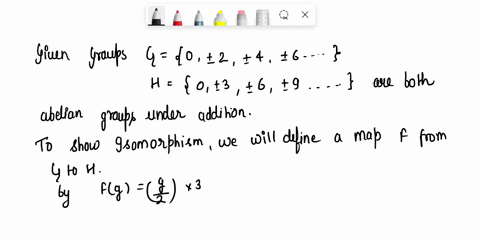 Given groups G = {0, ±2, ±4, ±6 ....}
H = {0, ±3, ±6, ±9 .....} are both
abelian groups under addition.
To show Isomorphism, we will define a map f from
G to H.
by f(g) = (g/2) × 3